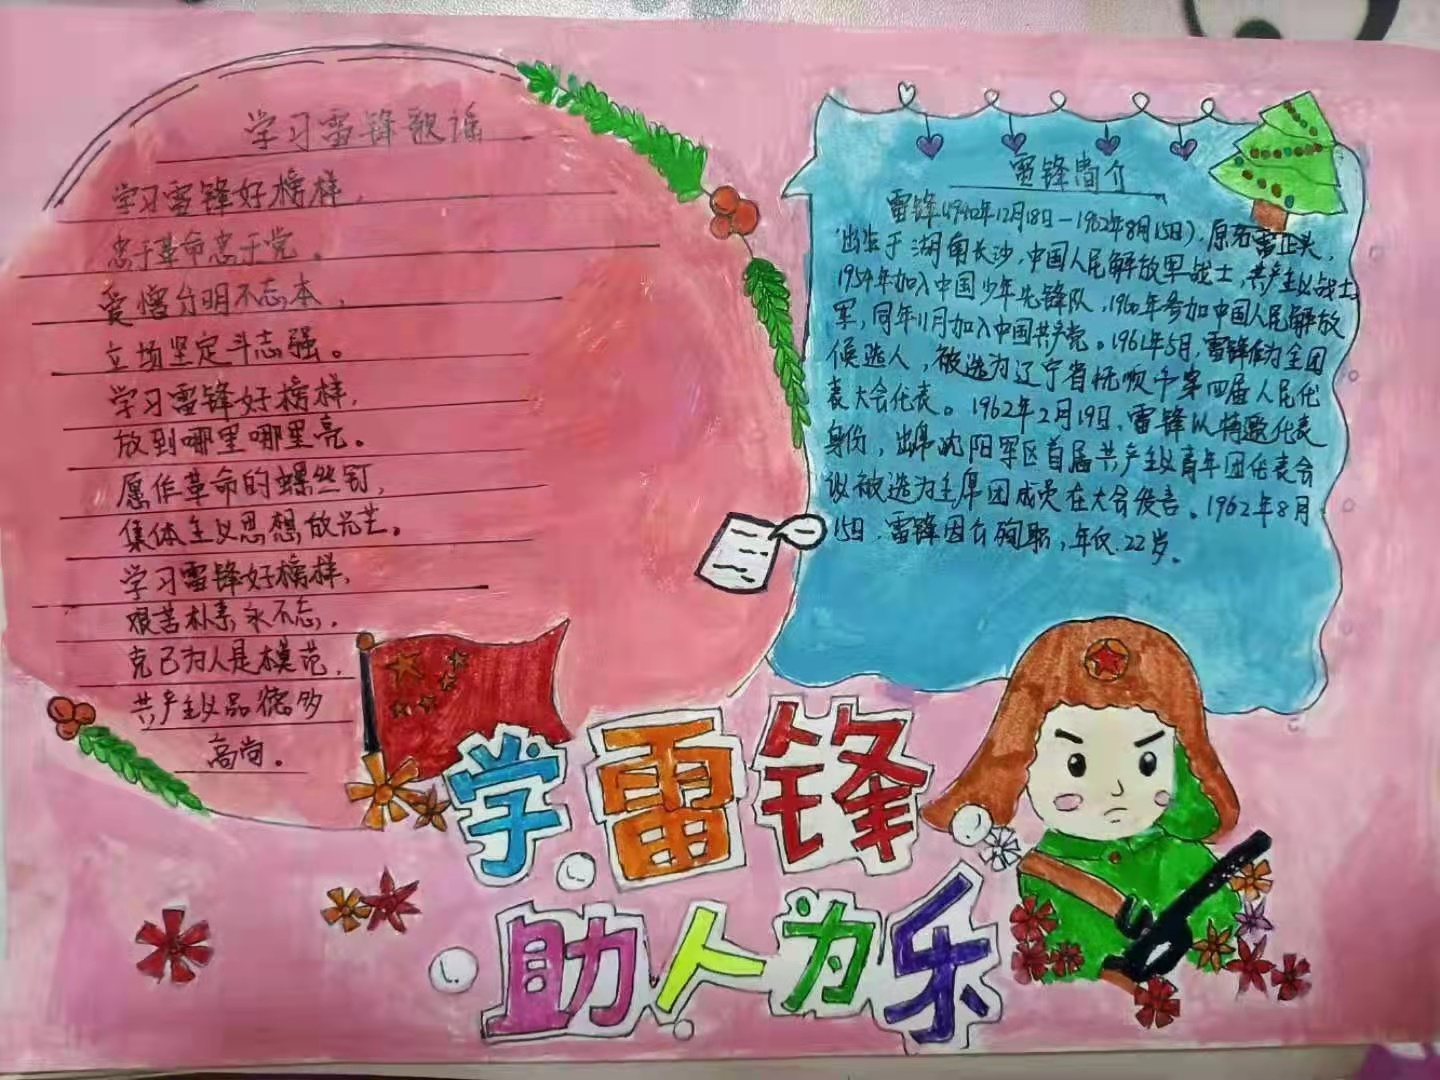 学习雷锋歌谣
学习雷锋好榜样，
忠于革命忠于党。
爱憎分明不忘本，
立场坚定斗志强。
学习雷锋好榜样，
放到哪里哪里亮。
愿作革命的螺丝钉，
集体主义思想放光芒。
学习雷锋好榜样，
艰苦朴素永不忘，
克己为人是模范，
共产主义品德多
高尚。
雷锋简介
雷锋（1940年12月18日－1962年8月15日），原名雷正兴，
出生于湖南长沙，中国人民解放军战士，共产主义战士，
1954年加入中国少年先锋队，1960年参加中国人民解放
军，同年11月加入中国共产党。1961年5月，雷锋作为全团
候选人，被选为辽宁省抚顺市第四届人民代
表大会代表。1962年2月19日，雷锋以特邀代表
身份，出席沈阳军区首届共产主义青年团代表会
议被选为主席团成员在大会发言。1962年8月
15日，雷锋因公殉职，年仅22岁。
学雷锋
助人为乐